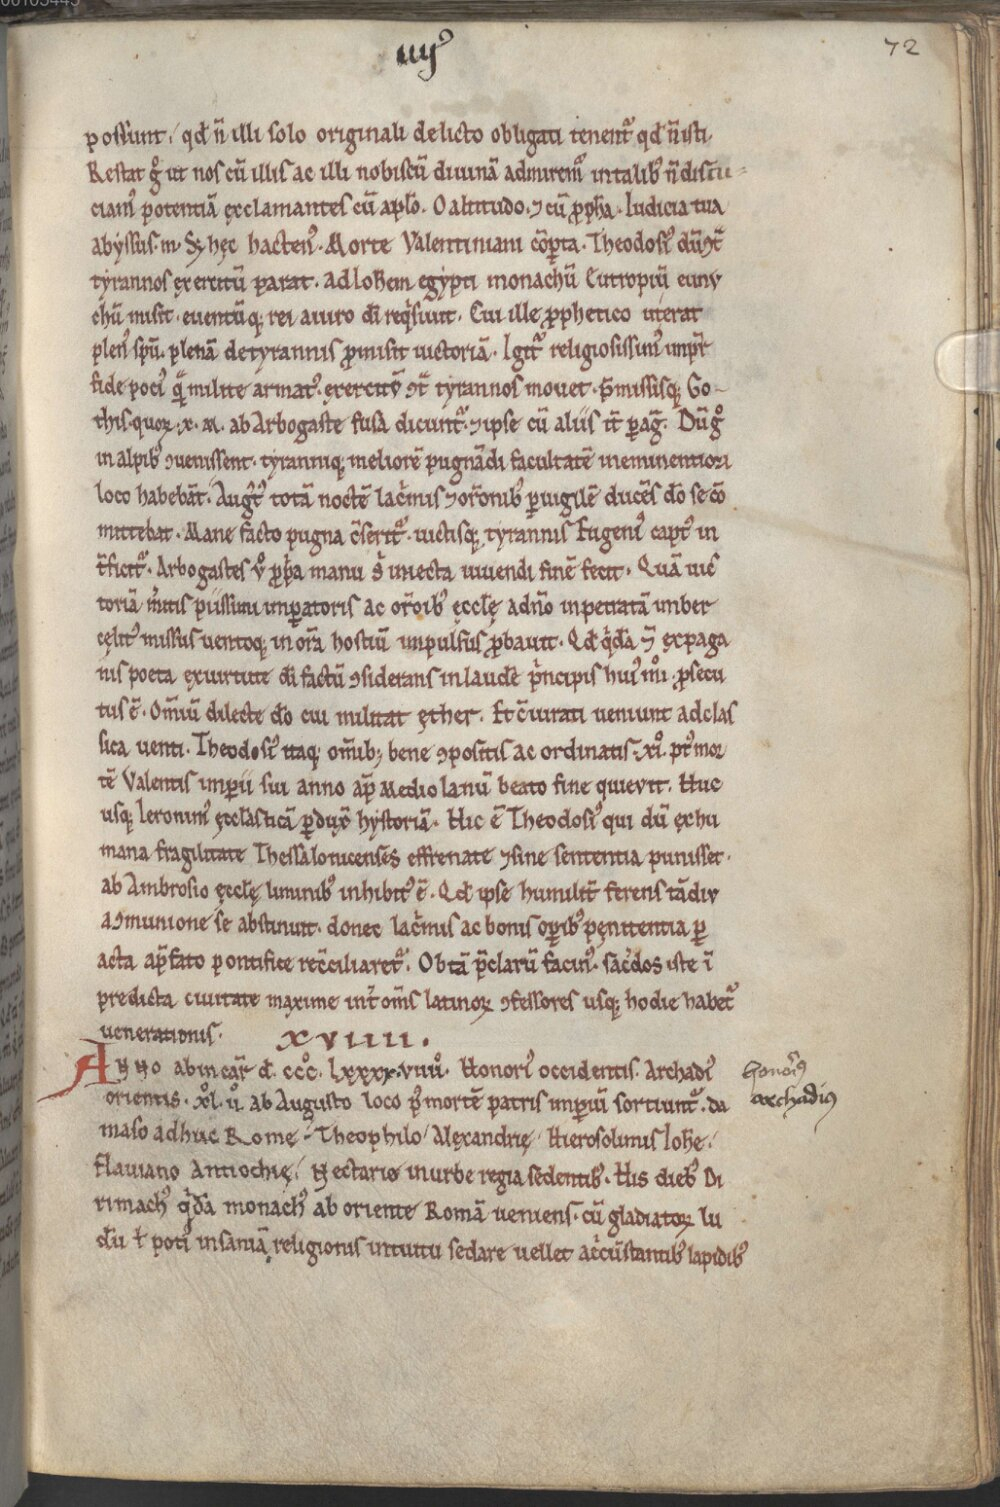 iiij⁹ 72
possunt / qd n̄ illi solo originali delicto obligati tenent᷑ qd n̄ isti.
Restat g̊ ut nos cū illis ac illi nobiscū diuinā admirem᷑ in talib⁹ n̄ discu-
ciam⁹ potentiā exclamantes cū apl̄o. O altitudo. ⁊ cū ꝓph̄a. Iudicia tua
abyssus. m. Sꝫ hęc hacten⁹. Morte Valentiniani cōꝑta. Theodosi⁹ dū ꝯt̄
tyrannos exercitū parat. ad Ioh̄em egypti monachū Eutropiū eunu
chū misit. euentūq; rei a uiro dī req̇siuit. Cui ille ꝓphetico ut erat
plen⁹ sp̄u. plenā de tyrannis ꝓmisit uictoriā. Igit᷑ religiosissim⁹ imp̄r
fide poci⁹ q̄ milite armat⁹. exercitū ꝯt̄ tyrannos mouet. P̄missisq; Go-
this. quoꝝ .x. M. ab Arbogaste fusa dicunt᷑. ⁊ ipse cū aliis it̄ ꝑaḡ. Dū g̊
in alpib⁹ ꝯuenissent. tyranniq; meliorē pugnādi facultatē in eminentiori
loco habebāt. Augt̄⁹ totā noctē lac̄mis ⁊ or̄onib⁹ ꝑuigilē ducēs dō se cō
mittebat. Mane facto pugna c̄serit᷑. uictisq; tyrannis Eugeni⁹ capt⁹ in
t̄ficit᷑. Arbogastes ů ꝓp̄a manu s̄ iniecta uiuendi finē fecit. Quā uic
toriā m̄itis piissimi imꝑatoris ac or̄oib⁹ eccl̄ę a dn̄o inpetratā imber
cęlit⁹ missus uentoq; in or̄a hostiū impulsus ꝓbauit. Qd q̇dā ⁊̄ ex paga
nis poeta ex uirtute dī factū ꝯsiderans in laudē ṗncipis hui⁹ m̊i ꝓsecu
tus ē. O m̄iū dilecte dō cui militat ęther. Et c̄iurati ueniunt ad clas
sica uenti. Theodosi⁹ itaq; om̄ib; bene ꝯpositis ac ordinatis. .xi̊. p⁹t mor
tē Valentis imꝑii sui anno ap̄ Mediolanū beato fine quieuit. Huc
usq; Ieronim⁹ eccl̄asticā ꝑduxit hystoriā. Hic ē Theodosi⁹ qui dū ex hu
mana fragilitate Thessalonicenses effrenate ⁊ sine sententia punisset.
ab Ambrosio eccl̄ę liminib⁹ inhibit⁹ ē. Qd ipse humilit̄ ferens tā diu
a ꝯmunione se abstinuit. donec lac̄mis ac bonis oꝑib⁹ pęnitentia ꝑ
acta a p̄fato pontifice rec̄ciliaret᷑. Ob tā p̄clarū facin⁹. sac̄dos iste ī
predicta ciuitate maxime int̄ om̄s latinoꝝ ꝯfessores usq; hodie habet᷑
uenerationis. XVIIII.
Anno ab incar̄ d̄. ccc̊. lxxxx. viii̊. Honori⁹ occidentis. Archadi⁹
orientis. x̊l. ů. ab Augusto loco p⁹ mortē patris imꝑiū sortiunt᷑. Da
maso adhuc Romę. Theophilo / Alexandrię / Hierosolimis Ioh̄e /
Flauiano Antiochię / Nectario in urbe regia sedentib⁹. His dieb⁹ Di
rimach⁹ q̇dā monach⁹ ab oriente Romā ueniens. cū gladiatoꝝ lu
dū ł poti⁹ insaniā religionis intuitu sedare uellet a c̄cūstantib⁹ lapidib⁹
honori⁹
archadius